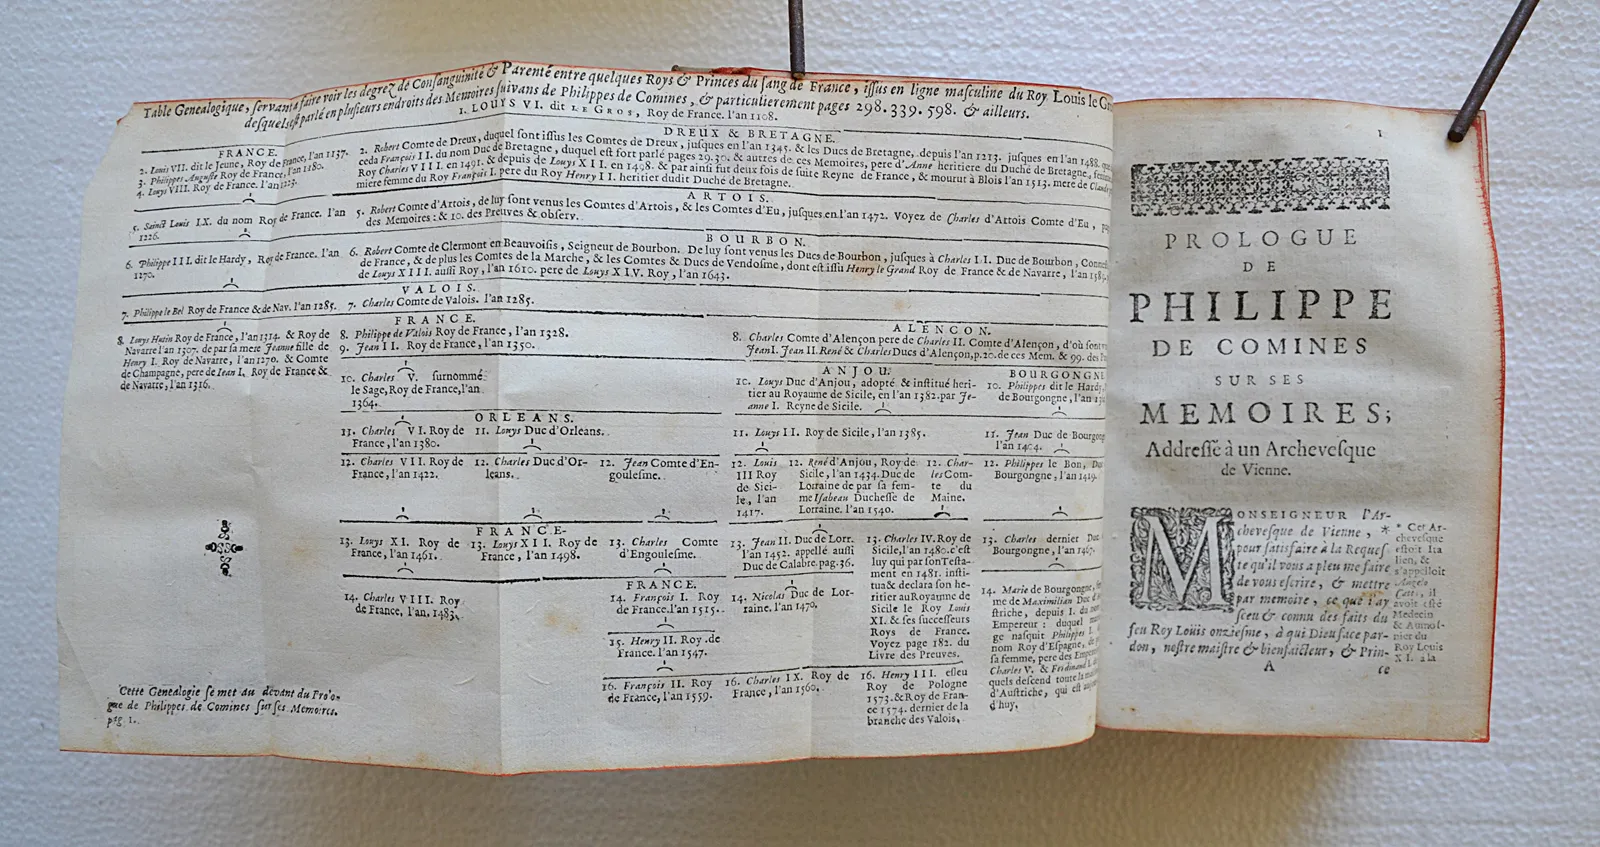 Table Genealogique, servant à faire voir les degrez de Consanguinité & Parenté entre quelques Roys & Princes du sang de France, issus en ligne masculine du Roy Louis le
desquels est parlé en plusieurs endroits des Memoires suivans de Philippes de Comines, & particulierement pages 298. 339. 598. & ailleurs.
1. LOUYS VI. dit LE GROS, Roy de France. l'an 1108.
FRANCE.
2. Louis VII. dit le Jeune, Roy de France, l'an 1137.
3. Philippes Auguste Roy de France, l'an 1180.
4. Louys VIII. Roy de France. l'an 1223.
DREUX & BRETAGNE.
2. Robert Comte de Dreux, duquel sont issus les Comtes de Dreux, jusques en l'an 1345. & les Ducs de Bretagne, depuis l'an 1213. jusques en l'an 1488. que
ceda François II. du nom Duc de Bretagne, duquel est fort parlé pages 29. 30. & autres de ces Memoires, pere d'Anne heritiere du Duché de Bretagne,
Roy Charles VIII. en 1491. & depuis de Louys XII. en 1498. & par ainsi fut deux fois de suite Reyne de France, & mourut à Blois l'an 1513. mere de
miere femme du Roy François I. pere du Roy Henry II. heritier dudit Duché de Bretagne.
ARTOIS.
5. Sainct Louis IX. du nom Roy de France. l'an
1226.
5. Robert Comte d'Artois, de luy sont venus les Comtes d'Artois, & les Comtes d'Eu, jusques en l'an 1472. Voyez de Charles d'Artois Comte d'Eu,
des Memoires: & 10. des Preuves & observ.
BOURBON.
6. Philippe III. dit le Hardy, Roy de France. l'an
1270.
6. Robert Comte de Clermont en Beauvoisis, Seigneur de Bourbon. De luy sont venus les Ducs de Bourbon, jusques à Charles II. Duc de Bourbon,
de France, & de plus les Comtes de la Marche, & les Comtes & Ducs de Vendosme, dont est issu Henry le Grand Roy de France & de Navarre, l'an
de Louys XIII. aussi Roy, l'an 1610. pere de Louys XIV. Roy, l'an 1643.
VALOIS.
7. Philippe le Bel Roy de France & de Nav. l'an 1285.
7. Charles Comte de Valois. l'an 1285.
FRANCE.
8. Louys Hutin Roy de France, l'an 1314. & Roy de
Navarre l'an 1307. de par sa mere Jeanne fille de
Henry I. Roy de Navarre, l'an 1270. & Comte
de Champagne, pere de Jean I. Roy de France &
de Navarre, l'an 1316.
8. Philippe de Valois Roy de France, l'an 1328.
9. Jean II. Roy de France, l'an 1350.
ALENCON.
8. Charles Comte d'Alençon pere de Charles II. Comte d'Alençon, d'où sont
Jean I. Jean II. René & Charles Ducs d'Alençon, p. 20. de ces Mem. & 99. des
10. Charles V. surnommé
le Sage, Roy de France, l'an
1364.
ANJOU.
10. Louys Duc d'Anjou, adopté & institué heri-
tier au Royaume de Sicile, en l'an 1382. par Je-
anne I. Reyne de Sicile.
BOURGONGNE
10. Philippes dit le Hardy,
de Bourgongne, l'an
ORLEANS.
11. Charles VI. Roy de
France, l'an 1380.
11. Louys Duc d'Orleans.
11. Louys II. Roy de Sicile, l'an 1385.
11. Jean Duc de
l'an 1404.
12. Charles VII. Roy de
France, l'an 1422.
12. Charles Duc d'Or-
leans.
12. Jean Comte d'En-
goulesme.
12. Louis
III Roy
de Sici-
le, l'an
1417.
12. René d'Anjou, Roy de
Sicile, l'an 1434. Duc de
Lorraine de par sa fem-
me Isabeau Duchesse de
Lorraine. l'an 1540.
12. Char-
les Com-
te du
Maine.
12. Philippes le Bon,
Bourgongne, l'an 1419.
FRANCE.
13. Louys XI. Roy de
France, l'an 1461.
13. Louys XII. Roy de
France, l'an 1498.
13. Charles Comte
d'Engoulesme.
13. Jean II. Duc de Lorr.
l'an 1452. appellé aussi
Duc de Calabre. pag. 36.
13. Charles IV. Roy de
Sicile, l'an 1480. c'est
luy qui par son Testa-
ment en 1481. insti-
tua & declara son he-
ritier au Royaume de
Sicile le Roy Louis
XI. & ses successeurs
Roys de France.
Voyez page 182. du
Livre des Preuves.
13. Charles dernier
Bourgongne, l'an 1467.
14. Charles VIII. Roy
de France, l'an. 1483.
FRANCE.
14. François I. Roy
de France. l'an 1515.
14. Nicolas Duc de Lor-
raine. l'an 1470.
14. Marie de Bourgongne,
me de Maximilian Duc
striche, depuis I. du
Empereur: duquel
ge nasquit Philippes I.
nom Roy d'Espagne,
sa femme, pere des
Charles V. & Ferdinand I.
quels descend toute la
d'Austriche, qui est
d'huy.
15. Henry II. Roy de
France. l'an 1547.
16. François II. Roy
de France, l'an 1559.
16. Charles IX. Roy de
France, l'an 1560.
16. Henry III. esleu
Roy de Pologne
1573. & Roy de Fran-
ce 1574. dernier de la
branche des Valois.
Cette Genealogie se met au devant du Prolo-
gue de Philippes de Comines sur ses Memoires.
pag. 1.
1
PROLOGUE
DE
PHILIPPE
DE COMINES
SUR SES
MEMOIRES;
Addressé à un Archevesque
de Vienne.
MONSEIGNEUR l'Ar-
chevesque de Vienne, *
pour satisfaire à la Reques
te qu'il vous a pleu me faire
de vous escrire, & mettre
par memoire, ce que i'ay
sceu & connu des faits du
feu Roy Loüis onziesme, à qui Dieu face par-
don, nostre maistre & bienfaicteur, & Prin-
* Cet Ar-
chevesque
estoit Ita
lien, &
s'appelloit
Angelo
Cato, il
avoit esté
Medecin
& Aumos-
nier du
Roy Louis
XI. à la
A
ce